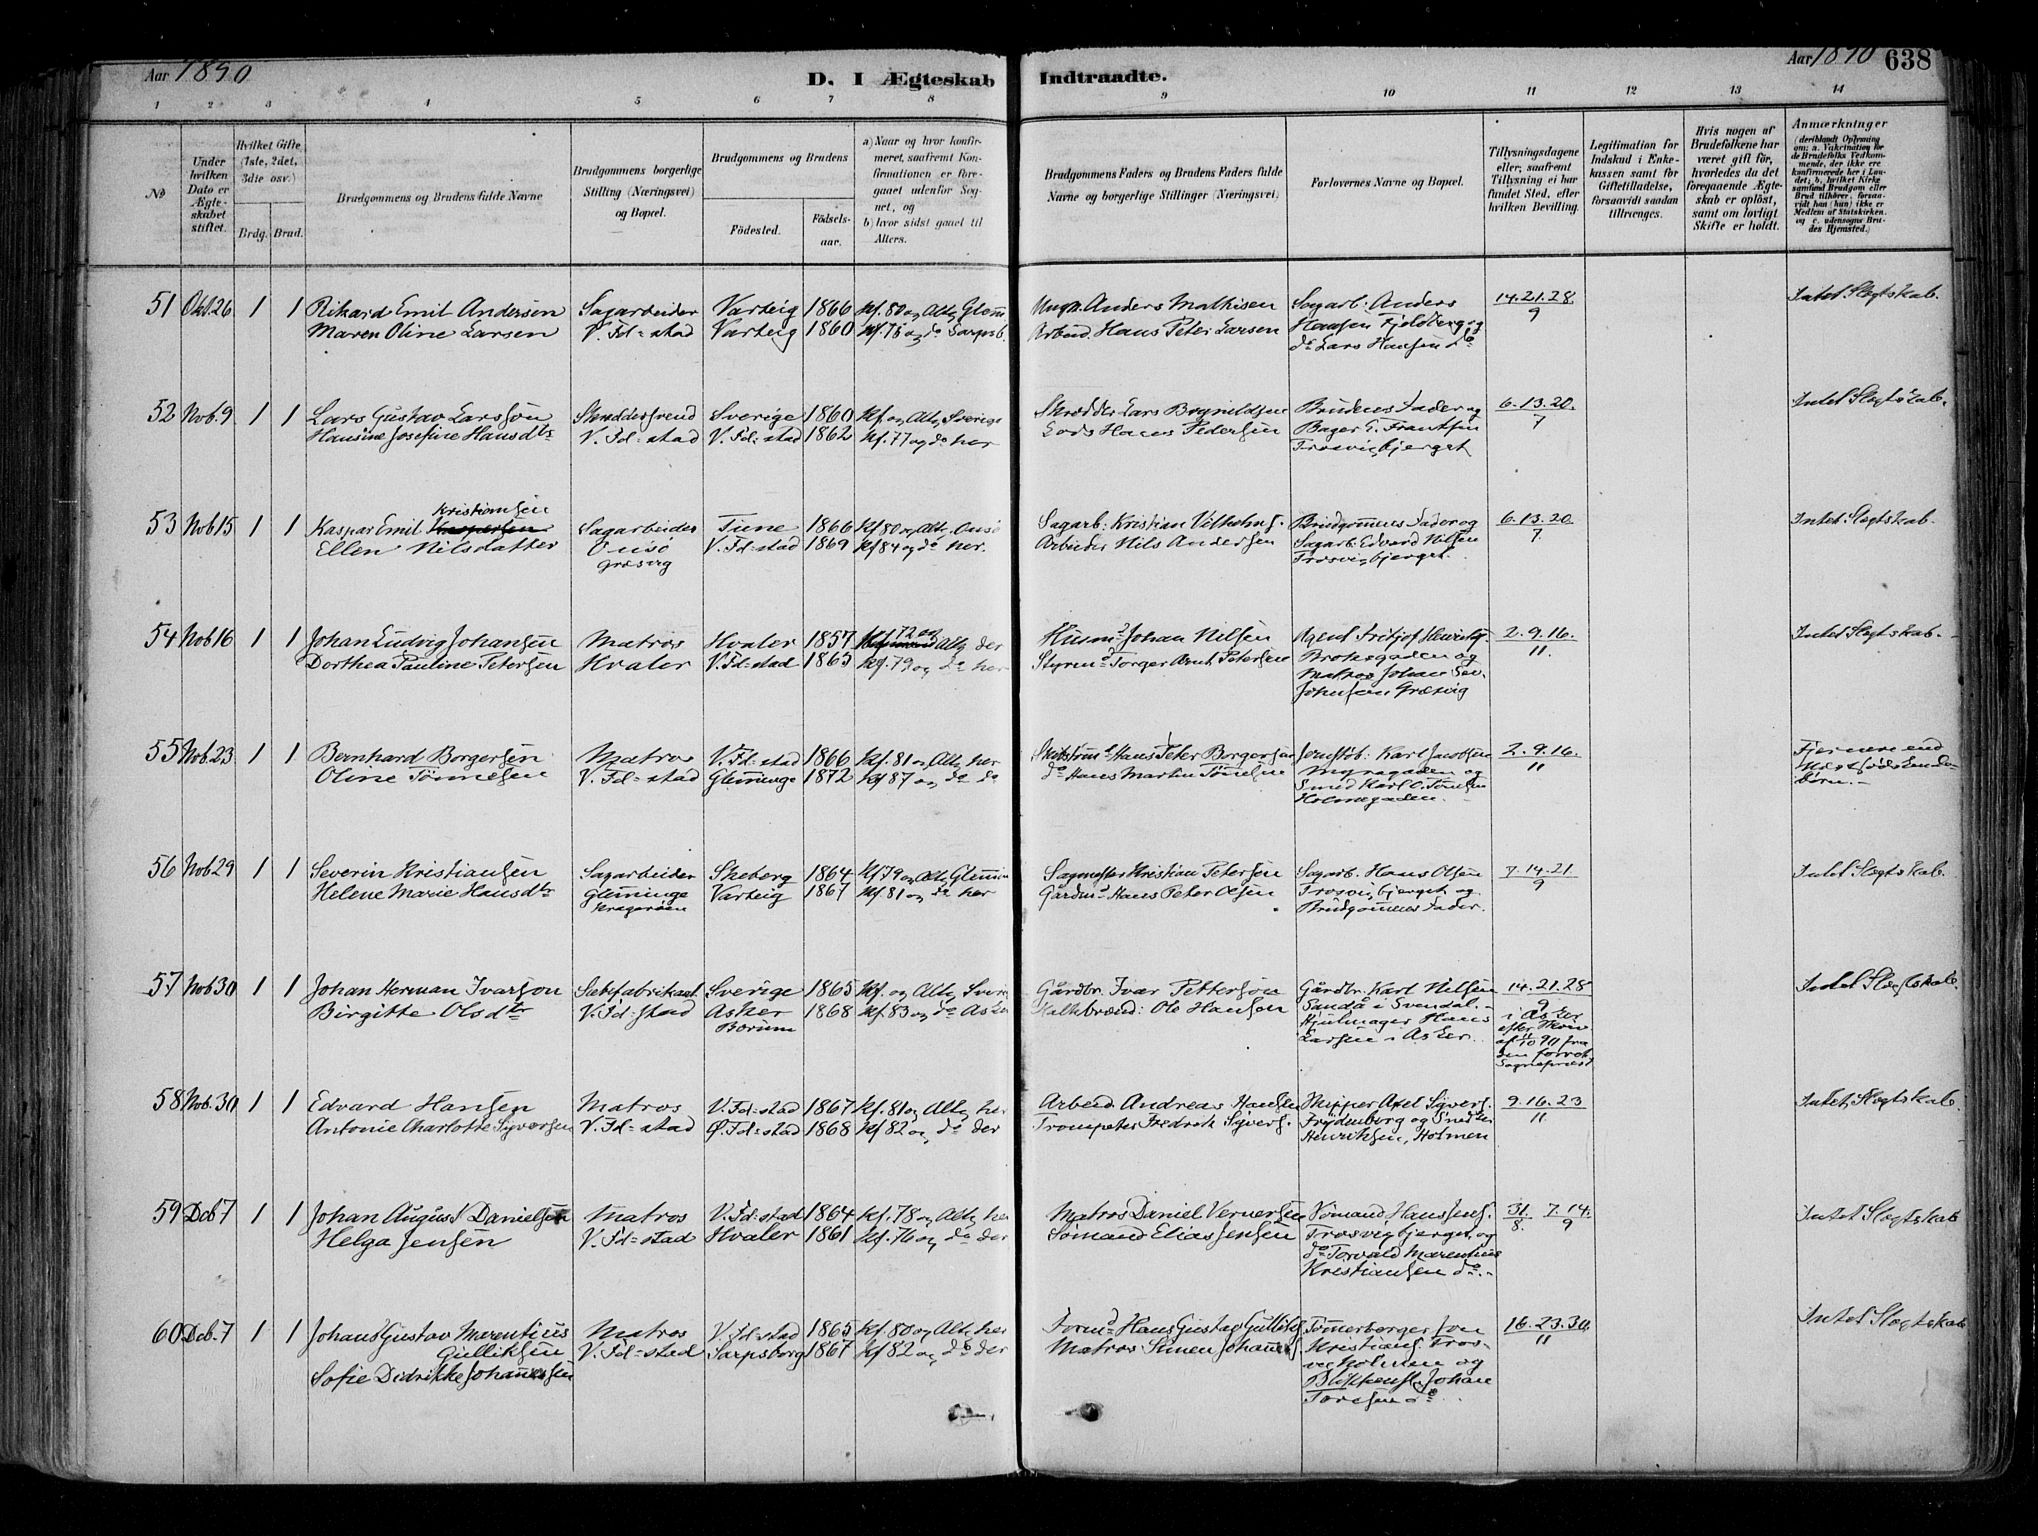 Aar 1890
D. I Ægteskab Indtraadte.
Aar 1890 638
1 2 3 4 5 6 7 8 9 10 11 12 13 14
No
Under hvilken Dato er Ægteskabet stiftet.
Hvilket Gifte (1ste, 2det, 3die osv.)
Brdg. Brud.
Brudgommens og Brudens fulde Navne
Brudgommens borgerlige Stilling (Næringsvei) og Bopæl.
Brudgommens og Brudens
Födested.
Födsels-aar.
a) Naar og hvor konfirmeret, saafremt Konfirmationen er foregaaet udenfor Sognet, og
b) hvor sidst gaaet til Alters.
Brudgommens Faders og Brudens Faders fulde Navne og borgerlige Stillinger (Næringsvei)
Forlovernes Navne og Bopæl.
Tillysningsdagene eller, saafremt Tillysning ei har fundet Sted, efter hvilken Bevilling.
Legitimation for Indskud i Enkekassen samt for Giftetilladelse, forsaavidt saadan tiltrænges.
Hvis nogen af Brudefolkene har været gift för, hvorledes da det foregaaende Ægteskab er oplöst, samt om lovligt Skifte er holdt.
Anmærkninger
(deriblandt Oplysning om: a. Vakcination for de Brudefolks Vedkommende, der ikke ere konfirmerede her i Landet; b. hvilket Kirkesamfund Brudgom eller Brud tilhörer, forsaavidt han (hun) ikke er Medlem af Statskirken, og c. udensogns Brudes Hjemsted.)
51 Okt.26 1 1 Rikard Emil Andersen Sagarbeider Varteig 1866 Kf. 80 og Altg Glem Anders Mathisen Sagarb. Anders 14.21.28 Intet Slegtskab.
Maren Oline Larsen V. Fd=stad Varteig 1860 Kf. 75 og do Sarpsb. Arbeid. Hans Peter Larsen Hansen Fjeldberg og 9
do Lars Hansen do
52 Nob.9 1 1 Lars Gustav Larsson Skreddersvend Sverige 1860 Kf. og Altg Sverige Skredder Lars Brynildsen Brudens Fader og 6.13.20. Intet Slegtskab.
Hansine Josefine Hansdtr V. Fd=stad V. Fd=stad 1862 Kf. 77 og do her Lods Hans Pedersen Bager T. Frantsen 7
Trosvigbjerget
Kristiansen
53 Nob15 1 1 Kaspar Emil Kaspersen Sagarbeider Tune 1866 Kf 80 og Altg Onsö Sagarb. Kristian Brudgommens Fader og 6.13.20 Intet Slegtskab.
Ellen Nilsdatter Onsö V. Fd=stad 1869 Kf 84 og do her. Arbeider Nils Andersen Sagarb. Edvard Nilsen 7.
Græsvig Trosvigbjerget.
54 Nob16 1 1 Johan Ludvig Johansen Matros Hvaler 1857 Kf. 72 og Altg der Husmd Johan Nilsen Agent Fritjof 2.9.16. Intet Slegtskab.
Dorthea Pauline Petersen Hvaler V. Fd=stad 1865 Kf. 79 og do her Styrmd Torger Arnt Petersen Broksgaden og 11.
Matros Johan Sev.
Johnsen Græsvig
55 Nob.23 1 1 Bernhard Borgersen Matros V. Fd=stad 1866 Kf. 81 og Altg her Hans Peter Borgersen Jernstöb. Karl Jacobsen 2.9.16. Fjernere end
Oline Tönnesen V. Fd=stad Glemminge 1872 Kf 87 og do do do Hans Martin Tönnesen Myragaden og 11
Smed Karl O. Tönsen börn.
Holmegaden.
56 Nob29 1 1 Severin Kristiansen Sagarbeider Skeberg 1864 Kf 79 og Altg Glemm Sagmester Kristian Petersen Sagarb. Hans Olsen 7.14.21 Intet Slegtskab.
Helene Marie Hansdtr Glemminge Varteig 1867 Kf. 81 og do her Gårdmd Hans Peter Olsen Trosvigbjerget og 9
Kragerøen Brudgommens Fader.
57 Nob30 1 1 Johan Herman Ivarson Sæbefabrikant Sverige 1865 Kf. og Altg Sver Gårdbr. Ivar Petterson Gårdbr. Karl Nilsen 14.21.28 Intet Slegtskab.
Birgitte Olsdtr V. Fd=stad Asker 1868 Kf. 83 og do Asker Kalkbrænd: Ole Hansen Sandå i Svendal. 9
Borum Hjulmager Hans i Asker
Larsen i Asker. efter
af 11/10 90 fra
Sognepræst
58 Nob.30 1 1 Edvard Hansen Matros V. Fd=stad 1867 Kf. 81 og Altg her Arbeid. Andreas Hansen Skipper Axel Syvers. 9.16.23 Intet Slegtskab.
Antonie Charlotte Syversen V. Fd=stad Ø. Fd=stad 1868 Kf 82 og do der Trompeter Fredrik Syvers. Frydenberg og Snedker 11
Henriksen, Holmen
59 Deb7 1 1 Johan August Danielsen Matros V. Fd=stad 1864 Kf. 78 og Altg her Matros Daniel Vernersen Sømand Hans Jens. 31. 7.14. Intet Slegtskab
Helga Jensen V. Fd=stad Hvaler 1861 Kf. 76 og do der Sömand Elias Jensen Trosvigbjerget og 8 9
do Torvald Marentius
Kristiansen do.
60 Deb.7 1 1 Johans Gustav Marentius Matros V. Fd=stad 1865 Kf. 80 og Altg her Formd Hans Gustav Gulliks Tömerborger Jon 16.23.30. Intet Slegtskab
Gulliksen V. Fd=stad Sarpsborg 1867 Kf 82 og do der Matros Simen Johannes Kristians. Tros- 11
Sofie Didrikke Johannessen vig Holmen og
Blikkensl. Johan
Toresen do